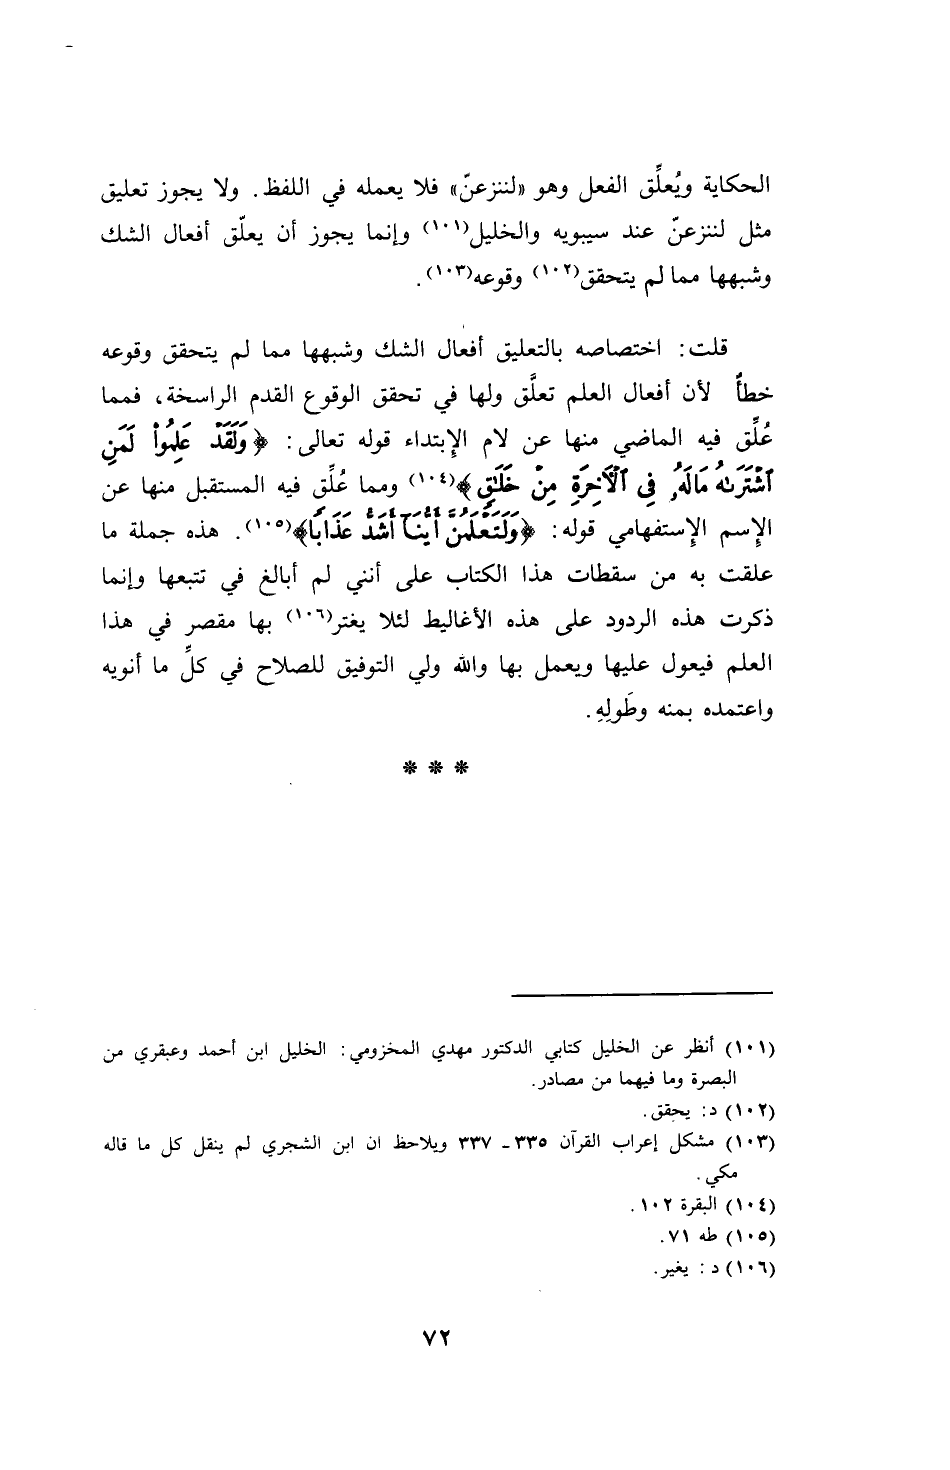 الحكاية ويُعلِّق الفعل وهو «لننزعنّ» فلا يعمله في اللفظ. ولا يجوز تعليق
مثل لننزعنّ عند سيبويه والخليل(١٠١) وإنما يجوز أن يعلّق أفعال الشك
وشبهها مما لم يتحقق(١٠٢) وقوعه(١٠٣).
قلت: اختصاصه بالتعليق أفعال الشك وشبهها مما لم يتحقق وقوعه
خطأٌ لأن أفعال العلم تعلَّق ولها في تحقق الوقوع القدم الراسخة، فمما
عُلِّق فيه الماضي منها عن لام الإبتداء قوله تعالى: ﴿وَلَقَدْ عَلِمُواْ لَمَنِ
ٱشْتَرَىٰهُ مَا لَهُۥ فِي ٱلْأَخِرَةِ مِنْ خَلَٰقٍ﴾(١٠٤) ومما عُلِّق فيه المستقبل منها عن
الإسم الإستفهامي قوله: ﴿وَلَتَعْلَمُنَّ أَيُّنَآ أَشَدُّ عَذَابًا﴾(١٠٥). هذه جملة ما
علقت به من سقطات هذا الكتاب على أنني لم أبالغ في تتبعها وإنما
ذكرت هذه الردود على هذه الأغاليط لئلا يغتر(١٠٦) بها مقصر في هذا
العلم فيعول عليها ويعمل بها والله ولي التوفيق للصلاح في كلِّ ما أنويه
واعتمده بمنه وطَولِهِ.
* * *
(١٠١) أنظر عن الخليل كتابي الدكتور مهدي المخزومي: الخليل ابن أحمد وعبقري من
البصرة وما فيهما من مصادر.
(١٠٢) د: يحقق.
(١٠٣) مشكل إعراب القرآن ٣٣٥ - ٣٣٧ ويلاحظ ان ابن الشجري لم ينقل كل ما قاله
مكي.
(١٠٤) البقرة ١٠٢.
(١٠٥) طه ٧١.
(١٠٦) د: يغير.
٧٢